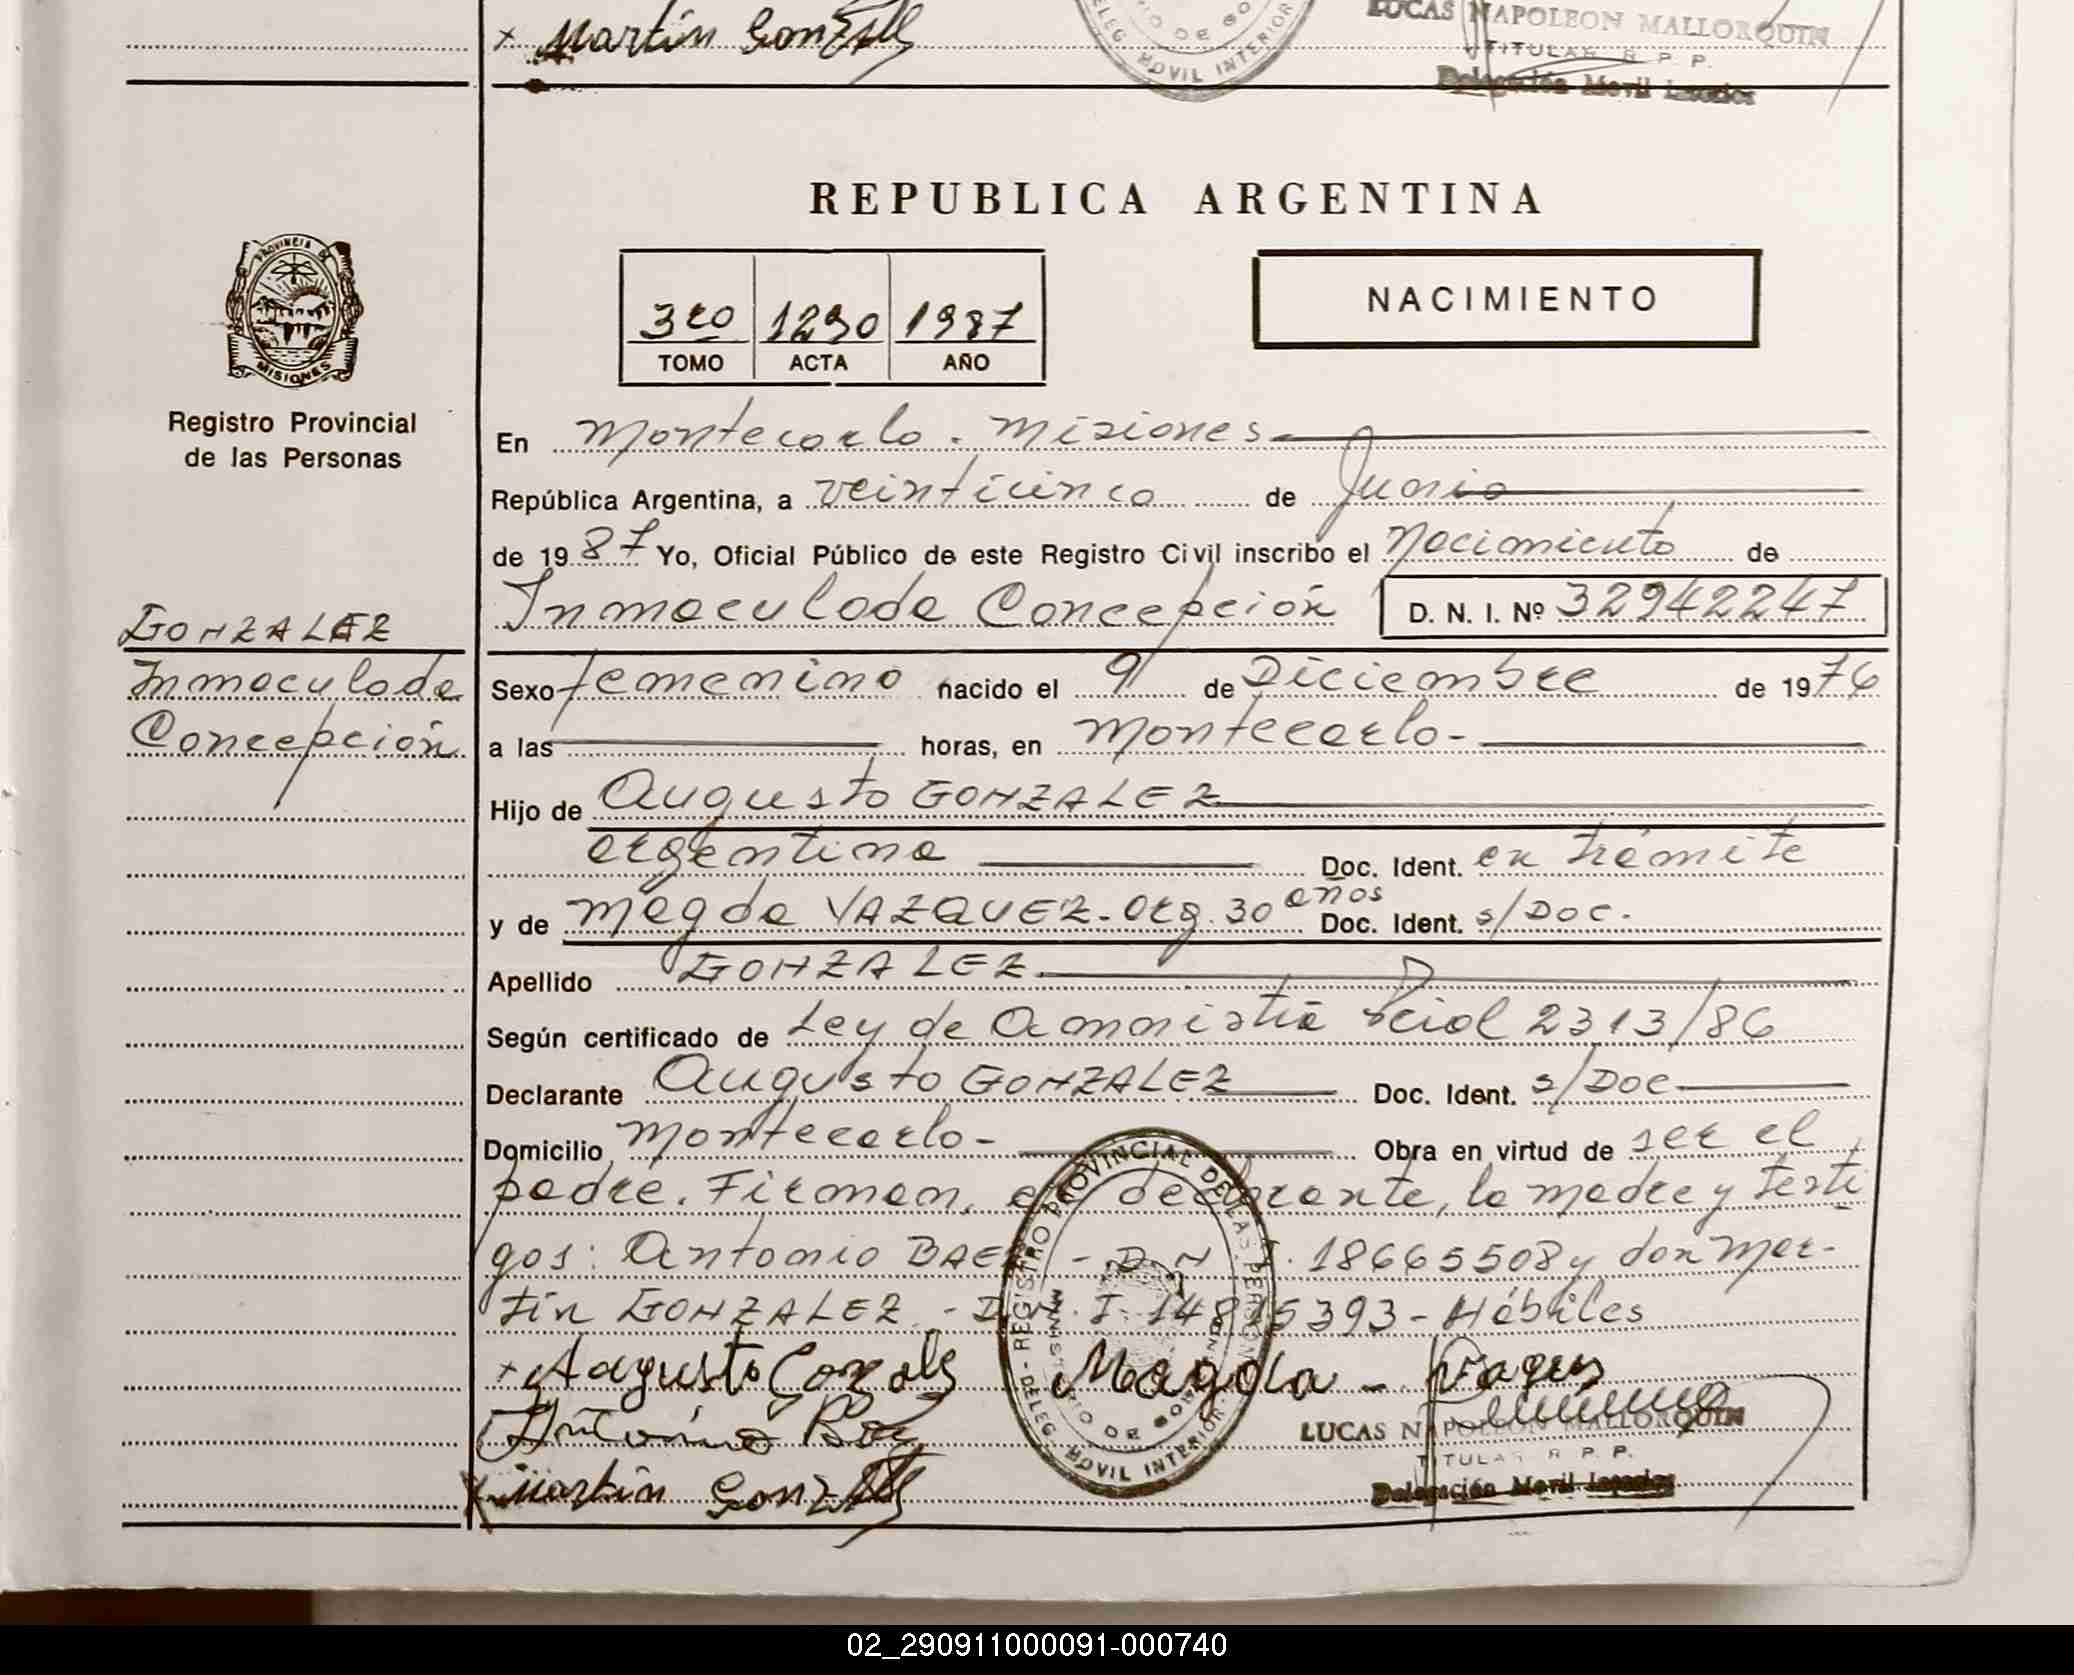 x Martín Gonzalez
LUCAS NAPOLEON MALLORQUIN
TITULAR R. P. P.
Delegación Movil
DELEG. MOVIL INTERIOR
REPUBLICA ARGENTINA
PROVINCIA DE
MISIONES
Registro Provincial
de las Personas
3ro 1290 1987
TOMO ACTA AÑO
NACIMIENTO
En Montecarlo. Misiones
República Argentina, a veinticinco de Junio
de 1987 Yo, Oficial Público de este Registro Civil inscribo el Nacimiento de
Inmaculada Concepción D. N. I. Nº 32942247
GONZALEZ
Inmaculada
Concepción
Sexo femenino nacido el 9 de Diciembre de 1976
a las horas, en Montecarlo-
Hijo de Augusto GONZALEZ
argentino Doc. Ident. en trámite
y de Magda VAZQUEZ. Arg. 30 años Doc. Ident. s/Doc.
Apellido GONZALEZ
Según certificado de Ley de Amnistía Pcial 2313/86
Declarante Augusto GONZALEZ Doc. Ident. s/Doc
Domicilio Montecarlo- Obra en virtud de ser el
padre. Firman, el declarante, la madre y testi
gos: Antonio BAEZ - D.N.I. 18665508 y don Mar-
tín GONZALEZ - D.N.I. 14815393 - Hábiles
REGISTRO PROVINCIAL DE LAS PERSONAS
MINISTERIO DE GOBIERNO
DELEG. MOVIL INTERIOR
x Augusto Gonzalez Magda - Vaques
Antonio Baez
LUCAS NAPOLEON MALLORQUIN
TITULAR R. P. P.
Delegación Movil
x Martín Gonzalez
02_290911000091-000740